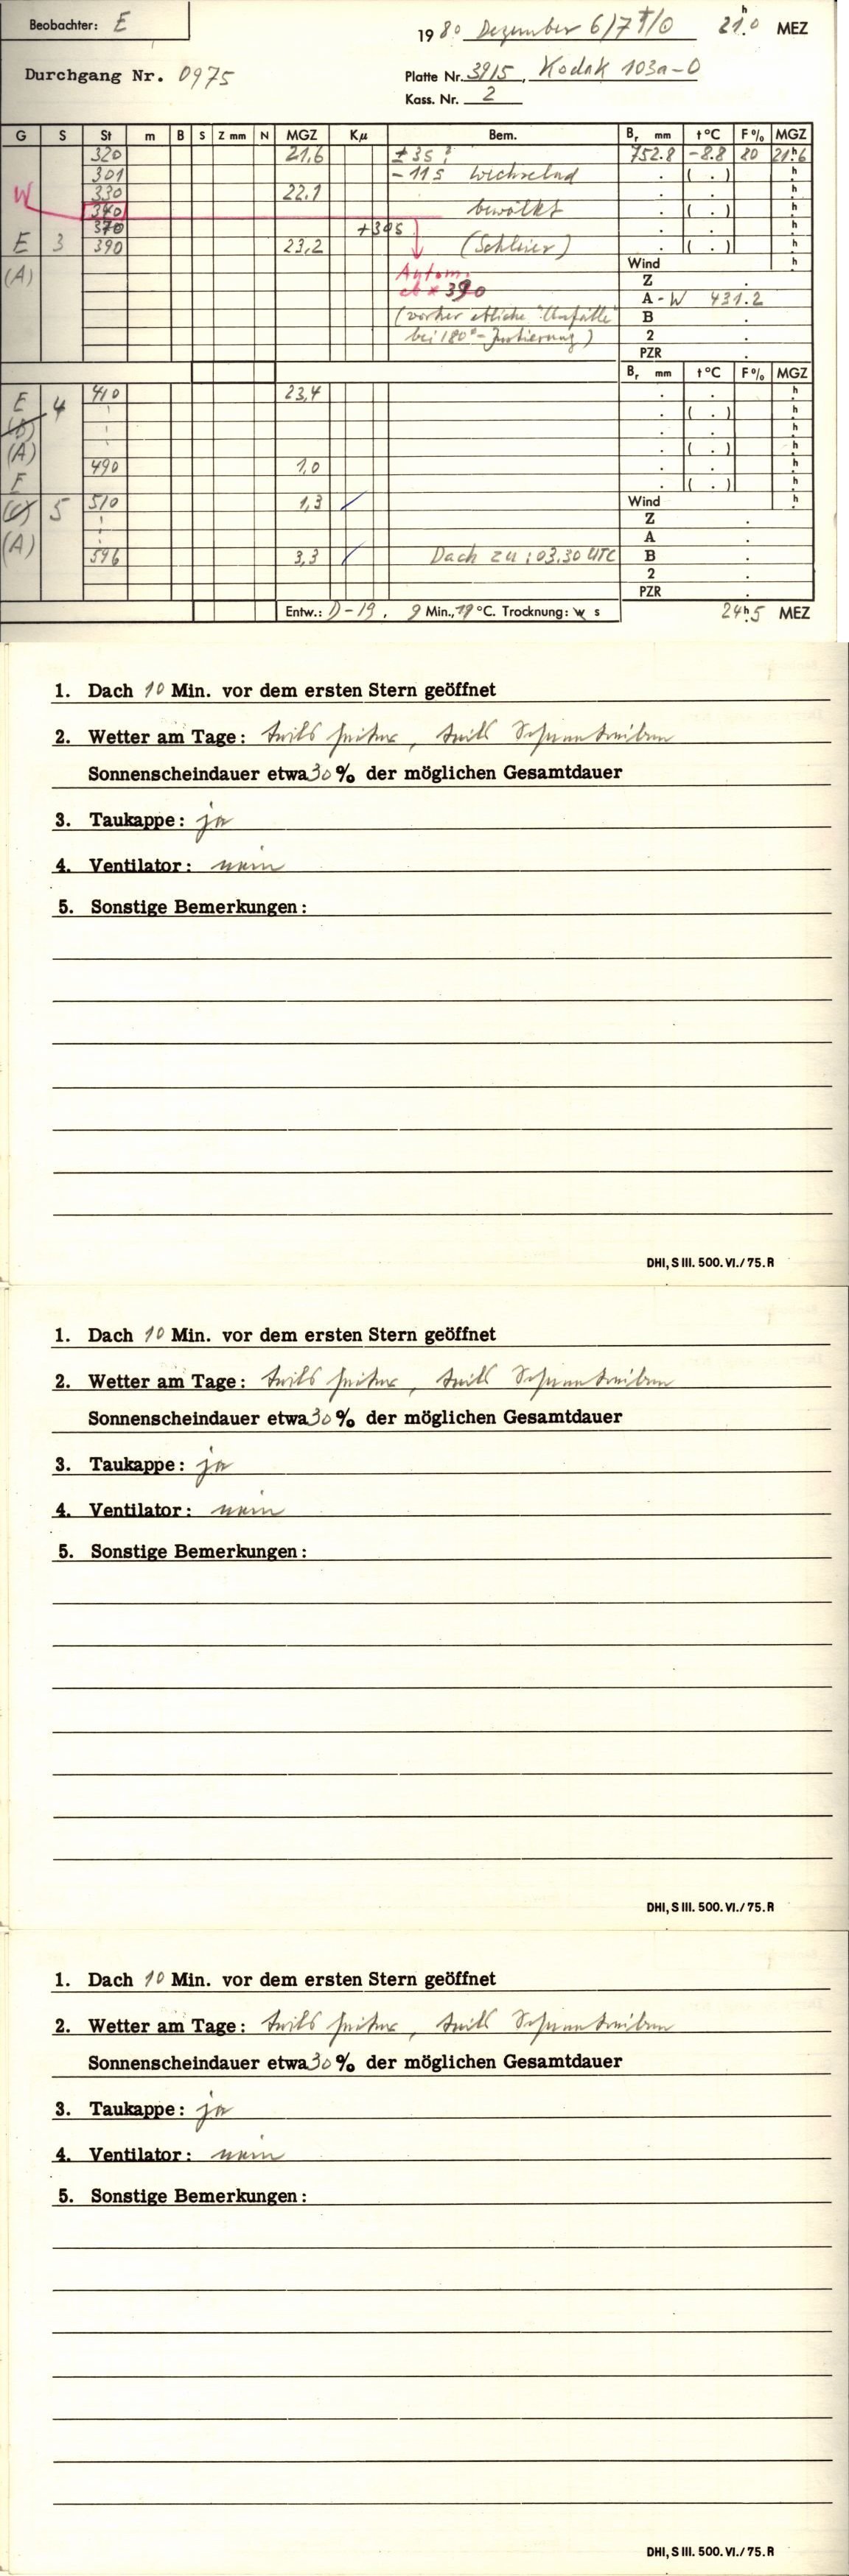 Beobachter: E
1980 Dezember 6/7 21h.0 MEZ
Durchgang Nr. 0975
Platte Nr. 3915, Kodak 103a-O
Kass. Nr. 2
G S St m B S Z mm N MGZ Kμ Bem. Br mm t°C F% MGZ
320 21,6 ± 3s ? 752.8 -8.8 80 21h.6
301 - 11s wechselnd . ( . ) h
W 330 22.1 . . h
340 bewölkt . ( . ) h
370 +39s . . h
E 3 390 23,2 (Schleier) . ( . ) h
Wind h
(A) Autom. Z .
ab * 390 A - W 431.2
(vorher etliche "Unfälle" B .
bei 180°-Justierung) 2 .
PZR .
Br mm t°C F% MGZ
E 4 410 23,4 . . h
(B) . ( . ) h
. . h
(A) . ( . ) h
E 490 1,0 . . h
. ( . ) h
5 510 1,3 Wind h
Z .
(A) A .
596 3,3 Dach zu: 03.30 UTC B .
2 .
PZR .
Entw.: D-19, 9 Min., 19 °C. Trocknung: w s 24h.5 MEZ
1. Dach 10 Min. vor dem ersten Stern geöffnet
2. Wetter am Tage: teils heiter, teils Schneetreiben
Sonnenscheindauer etwa 30 % der möglichen Gesamtdauer
3. Taukappe: ja
4. Ventilator: nein
5. Sonstige Bemerkungen:
DHI, S III. 500. VI./75. R
1. Dach 10 Min. vor dem ersten Stern geöffnet
2. Wetter am Tage: teils heiter, teils Schneetreiben
Sonnenscheindauer etwa 30 % der möglichen Gesamtdauer
3. Taukappe: ja
4. Ventilator: nein
5. Sonstige Bemerkungen:
DHI, S III. 500. VI./75. R
1. Dach 10 Min. vor dem ersten Stern geöffnet
2. Wetter am Tage: teils heiter, teils Schneetreiben
Sonnenscheindauer etwa 30 % der möglichen Gesamtdauer
3. Taukappe: ja
4. Ventilator: nein
5. Sonstige Bemerkungen:
DHI, S III. 500. VI./75. R